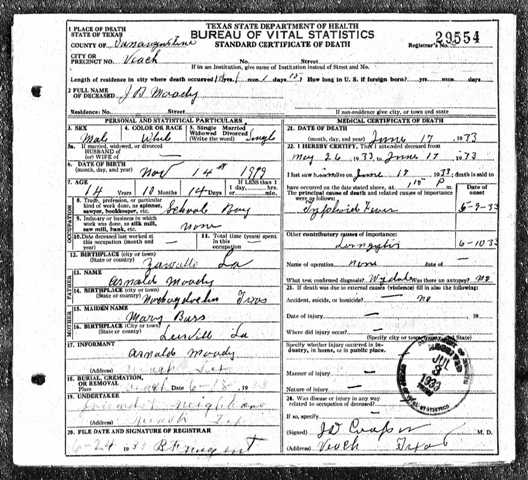 TEXAS STATE DEPARTMENT OF HEALTH
BUREAU OF VITAL STATISTICS
STANDARD CERTIFICATE OF DEATH
29554
Registrar's No.
1 PLACE OF DEATH
STATE OF TEXAS
COUNTY OF San Augustine
CITY OR
PRECINCT NO. Veach No. Street
If in an Institution, give name of Institution instead of Street and No.
Length of residence in city where death occurred yrs. mos. 15 ds. How long in U. S. if foreign born? yrs. mos. days
2 FULL NAME
OF DECEASED J B Moody
Residence: No. Street
If non-residence give city, or town and state
PERSONAL AND STATISTICAL PARTICULARS
3. SEX
Male
4. COLOR OR RACE
White
5. Single Married
Widowed Divorced
(Write)
Single
5a. If married, widowed, or divorced
HUSBAND OF
(or) WIFE OF —
6. DATE OF BIRTH
Nov 14th
7. AGE
14 Years 10 Months 14 Days
If LESS than 1
day, hrs. min.
8. Trade, profession, or particular
kind of work done, as spinner,
sawyer, bookkeeper, etc.
School Boy
9. Industry or business in which
work was done, as silk mill,
saw mill, bank, etc.
none
10. Date deceased last worked at
this occupation (month and year) —
11. Total time (years)
spent in this
occupation —
12. BIRTHPLACE (City or town)
(State or country)
La
FATHER
13. NAME
Arnald Moody
14. BIRTHPLACE (City or town)
(State or country)
Texas
MOTHER
15. MAIDEN NAME
Mary Bass
16. BIRTHPLACE (City or town)
(State or country)
La
17. INFORMANT
Arnald Moody
18. BURIAL, CREMATION,
OR REMOVAL
Date 6-18
19. UNDERTAKER
20. FILE DATE AND SIGNATURE OF REGISTRAR
6-24
MEDICAL CERTIFICATE OF DEATH
21. DATE OF DEATH
June 17 1933
22. I HEREBY CERTIFY, That I attended deceased from
May 26 1933, June 17, 1933
I last saw him alive on June 17 1933 death is said to
have occurred on the date stated above, at P. m.
The principal cause of death and related causes of importance
were as follows:
Date of
onset
Typhoid Fever
6-9-33
Other contributory causes of importance:
6-10-33
Name of operation none
What test confirmed diagnosis? Wydale Was there an autopsy? no
23. If death was due to external causes (violence) fill in also the following
Accident, suicide, or homicide? — no
Date of injury —
Where did injury occur? —
(Specify city or town, county and State)
Specify whether injury occurred in industry, in home, or in public place.
Manner of injury —
Nature of injury —
24. Was disease or injury in any way
related to occupation of deceased?
If so, specify —
(Signed) M. D.
(Address) Veach Texas
1933